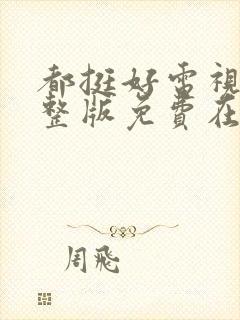 都挺好電視
整版免費在
周飛